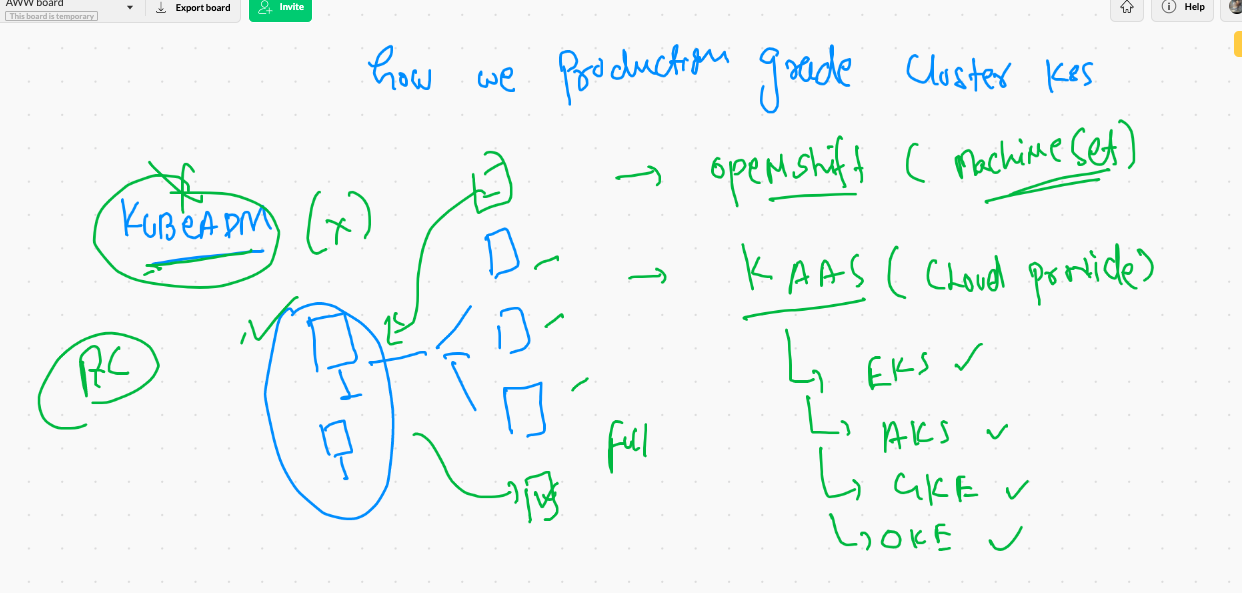 AWW board
This board is temporary
Export board
Invite
Help
how we production grade Cluster K8s
openshift ( machineset)
KUBEADM (x)
KAAS ( Cloud provide)
RC
EKS
AKS
full
GKE
OKE